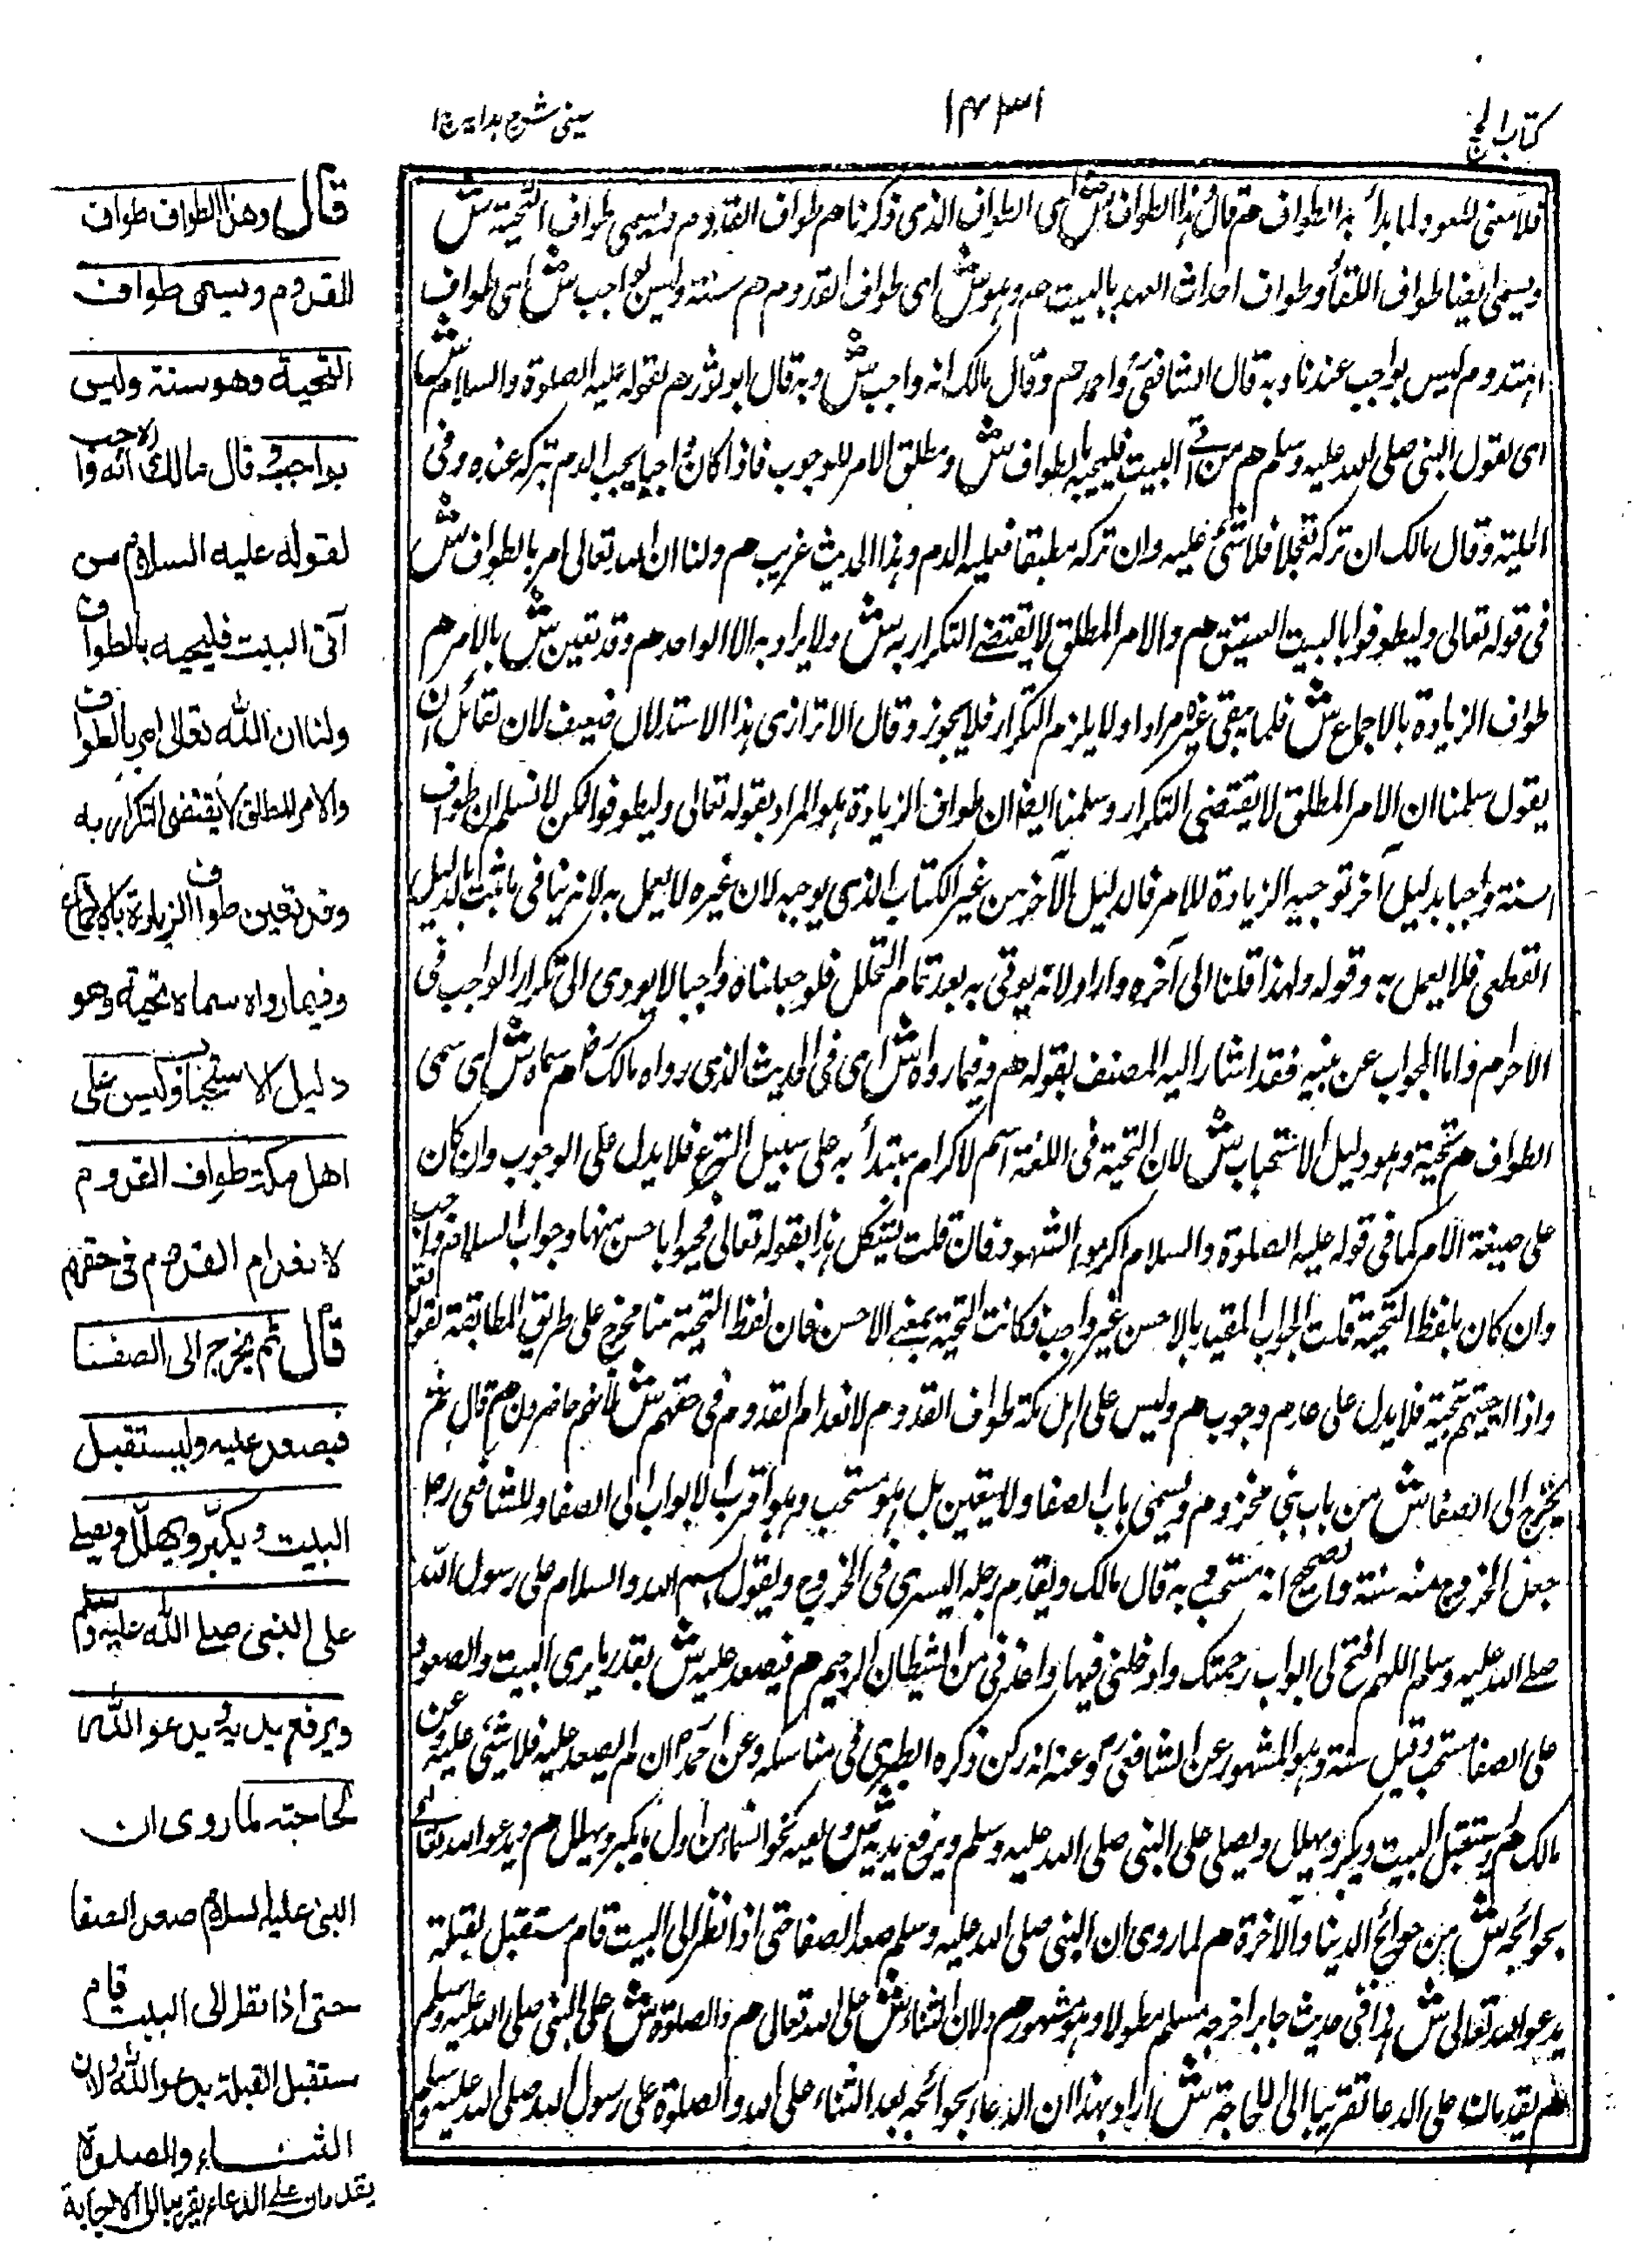 كتاب الحج
١٤٣١
عينى شرح هدايه ج ١
فلا معنى للعود لما بدأ به الطواف هم قال هذا الطواف ش اى الطواف الذى ذكرنا هم طواف القدوم ويسمى طواف التحية ش
ويسمى ايضا طواف اللقاء وطواف احداث العهد بالبيت هم وهو ش اى طواف القدوم هم سنة وليس بواجب ش اى طواف
القدوم ليس بواجب عندنا وبه قال الشافعى واحمد هم وقال مالك انه واجب ش وبه قال ابو ثور هم لقوله عليه الصلوة والسلام ش
اى لقول النبى صلى الله عليه وسلم هم من اتى البيت فليحيه بالطواف ش ومطلق الامر للوجوب فاذا كان واجبا يجب الدم بتركه عنده وفى
الحلية وقال مالك ان تركه معجلا فلا شئ عليه وان تركه مطيقا فعليه الدم وهذا الحديث غريب هم ولنا ان الله تعالى امر بالطواف ش
فى قوله تعالى وليطوفوا بالبيت العتيق هم والامر المطلق لا يقتضى التكرار به ش ولا يراد به الا الواحد هم وقد تعين ش بالامر هم
طواف الزيادة بالاجماع ش فلما يبقى غيره مرادا ولا يلزم التكرار فلا يجوز وقال الاترازى هذا الاستدلال ضعيف لان لقائل ان
يقول سلمنا ان الامر المطلق لا يقتضى التكرار وسلمنا ايضا ان طواف الزيادة هو المراد بقوله تعالى وليطوفوا لكن لا نسلم ان طواف
السنة واجبا بدليل آخر توجبه الزيادة للامر فالدليل الآخر من غير الكتاب الذى يوجبه لان غيره لا يعمل به لانه ينافى ما ثبت بالدليل
القطعى فلا يعمل به وقوله ولهذا قلنا الى آخره واراد لانه يوتى به بعد تمام التحلل فلو جعلناه واجبا لا يودى الى تكرار الواجب فى
الاحرام واما الجواب عن فقد اشار اليه المصنف بقوله هم وفيما رواه ش اى فى الحديث الذى رواه مالك هم سماه ش اى سمى
الطواف هم تحية وهو دليل الاستحباب ش لان التحية فى اللغة اسم لاكرام يبتدأ به على سبيل التبرع فلا يدل على الوجوب وان كان
على صيغة الامر كما فى قوله عليه الصلوة والسلام اكرموا الشهود فان قلت يشكل هذا بقوله تعالى فحيوا باحسن منها وجواب السلام واجب
وان كان بلفظ التحية قلت الجواب المقيد بالاحسن غير واجب فكانت التحية بمعنى الاحسن فان لفظ التحية هنا مخرج على طريق المطابقة لقوله تعالى
واذا حييتم بتحية فلا يدل على عدم وجوب هم وليس على اهل مكة طواف القدوم لانعدام القدوم فى حقهم ش لانهم حاضرون هم قال ثم
يخرج الى الصفا ش من باب بنى مخزوم ويسمى باب الصفا ولا يتعين بل هو مستحب وهو اقرب الابواب الى الصفا وللشافعى رحمه
جعل الخروج منه سنة والصحيح انه مستحب وبه قال مالك ويقدم رجله اليسرى فى الخروج ويقول بسم الله والسلام على رسول الله
صلى الله عليه وسلم اللهم افتح لى ابواب رحمتك وادخلنى فيها واعذنى من الشيطان الرجيم هم فيصعد عليه ش بقدر ما يرى البيت والصعود
على الصفا مستحب وقيل سنة وهو المشهور عن الشافعى رح وعنه انه ركن ذكره الطبرى فى مناسكه وعن احمد ان لم يصعد عليه فلا شئ عليه وعن
مالك هم ويستقبل البيت ويكبر ويهلل ويصلى على النبى صلى الله عليه وسلم ويرفع يديه ش نحو السماء من اول ما يكبر ويهلل هم ويدعو الله تعالى
بحوائجه ش من حوائج الدنيا والآخرة هم لما روى ان النبى صلى الله عليه وسلم صعد الصفا حتى اذا نظر الى البيت قام مستقبل القبلة
يدعو الله تعالى ش هذا فى حديث جابر اخرجه مسلم مطولا وهو مشهور هم ولان الثناء ش على الله تعالى هم والصلوة ش على النبى صلى الله عليه وسلم
هم يقدمان على الدعا تقريبا الى الحاجة ش اراد بهذا ان الدعاء بحوائجه بعد الثناء على الله والصلوة على رسول الله صلى الله عليه وسلم
قال وهذا الطواف طواف
القدوم ويسمى طواف
التحية وهو سنة وليس
بواجب وقال مالك انه واجب
لقوله عليه السلام من
آتى البيت فليحيه بالطواف
ولنا ان الله تعالى امر بالطواف
والامر المطلق لا يقتضى التكرار به
وقد تعين طواف الزيارة بالاجماع
وفيما رواه سماه تحية وهو
دليل الاستحباب وليس على
اهل مكة طواف القدوم
لانعدام القدوم فى حقهم
قال ثم يخرج الى الصفا
فيصعد عليه ويستقبل
البيت ويكبّر ويهلّل ويصلى
على النبى صلى الله عليه وسلم
ويرفع يديه ويدعو الله
لحاجته لما روى ان
النبى عليه السلام صعد الصفا
حتى اذا نظر الى البيت قام
مستقبل القبلة يدعو الله ولان
الثناء والصلوة
يقدمان على الدعاء تقريبا الى الاجابة